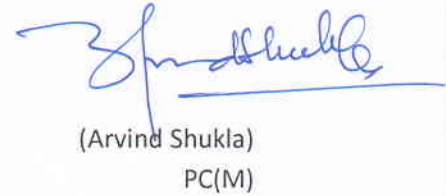 (Arvind Shukla)
PC(M)